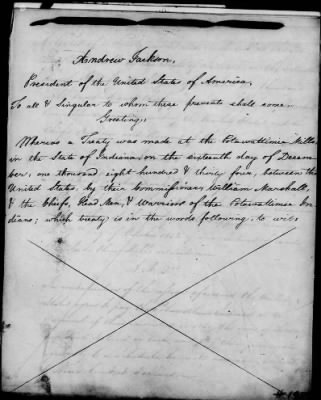 Andrew Jackson,
President of the United States of America,
To all & Singular to whom these presents shall come.
Greeting:
Whereas a Treaty was made at the Potawattimie Mills,
in the State of Indiana, on the sixteenth day of Decem-
ber, one thousand eight hundred & thirty four, between the
United States, by their Commissioner, William Marshall,
& the Chiefs, Head Men, & Warriors of the Potawattimie In-
dians; which treaty is in the words following, to wit: